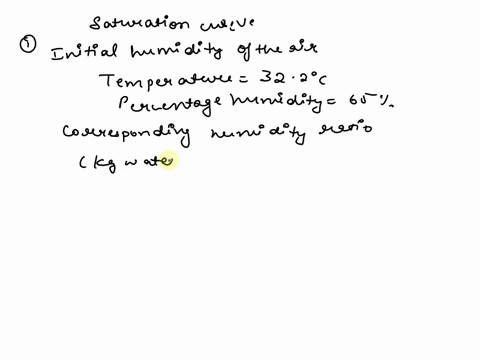 Saturation curve
① Initial humidity of the air
Temperature = 32.2°C
Percentage humidity = 65%.
Corresponding humidity ratio
(kg wate